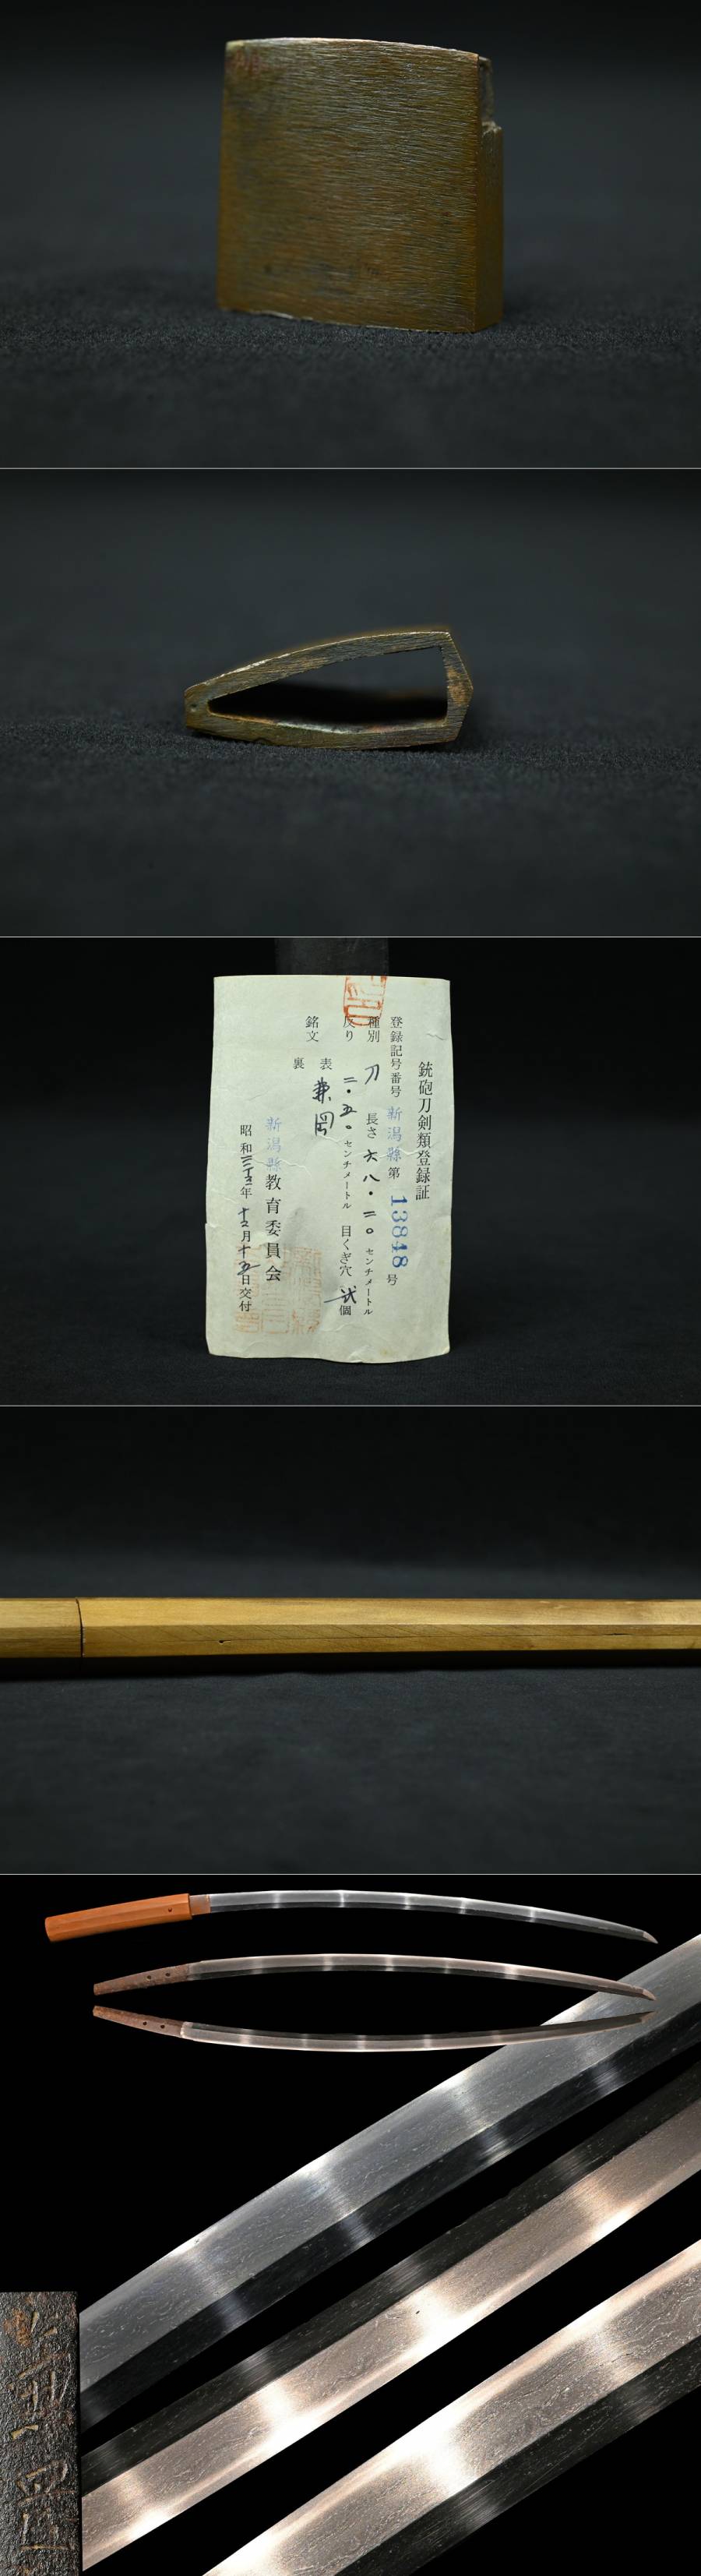 銃砲刀剣類登録証
登録記号番号 新潟縣 第 13848 号
種別 刀 長さ 六八・二〇 センチメートル
反り 二・五〇 センチメートル 目くぎ穴 弐 個
銘文 表 兼岡
裏
新潟縣教育委員会
昭和三十三年十二月十五日交付